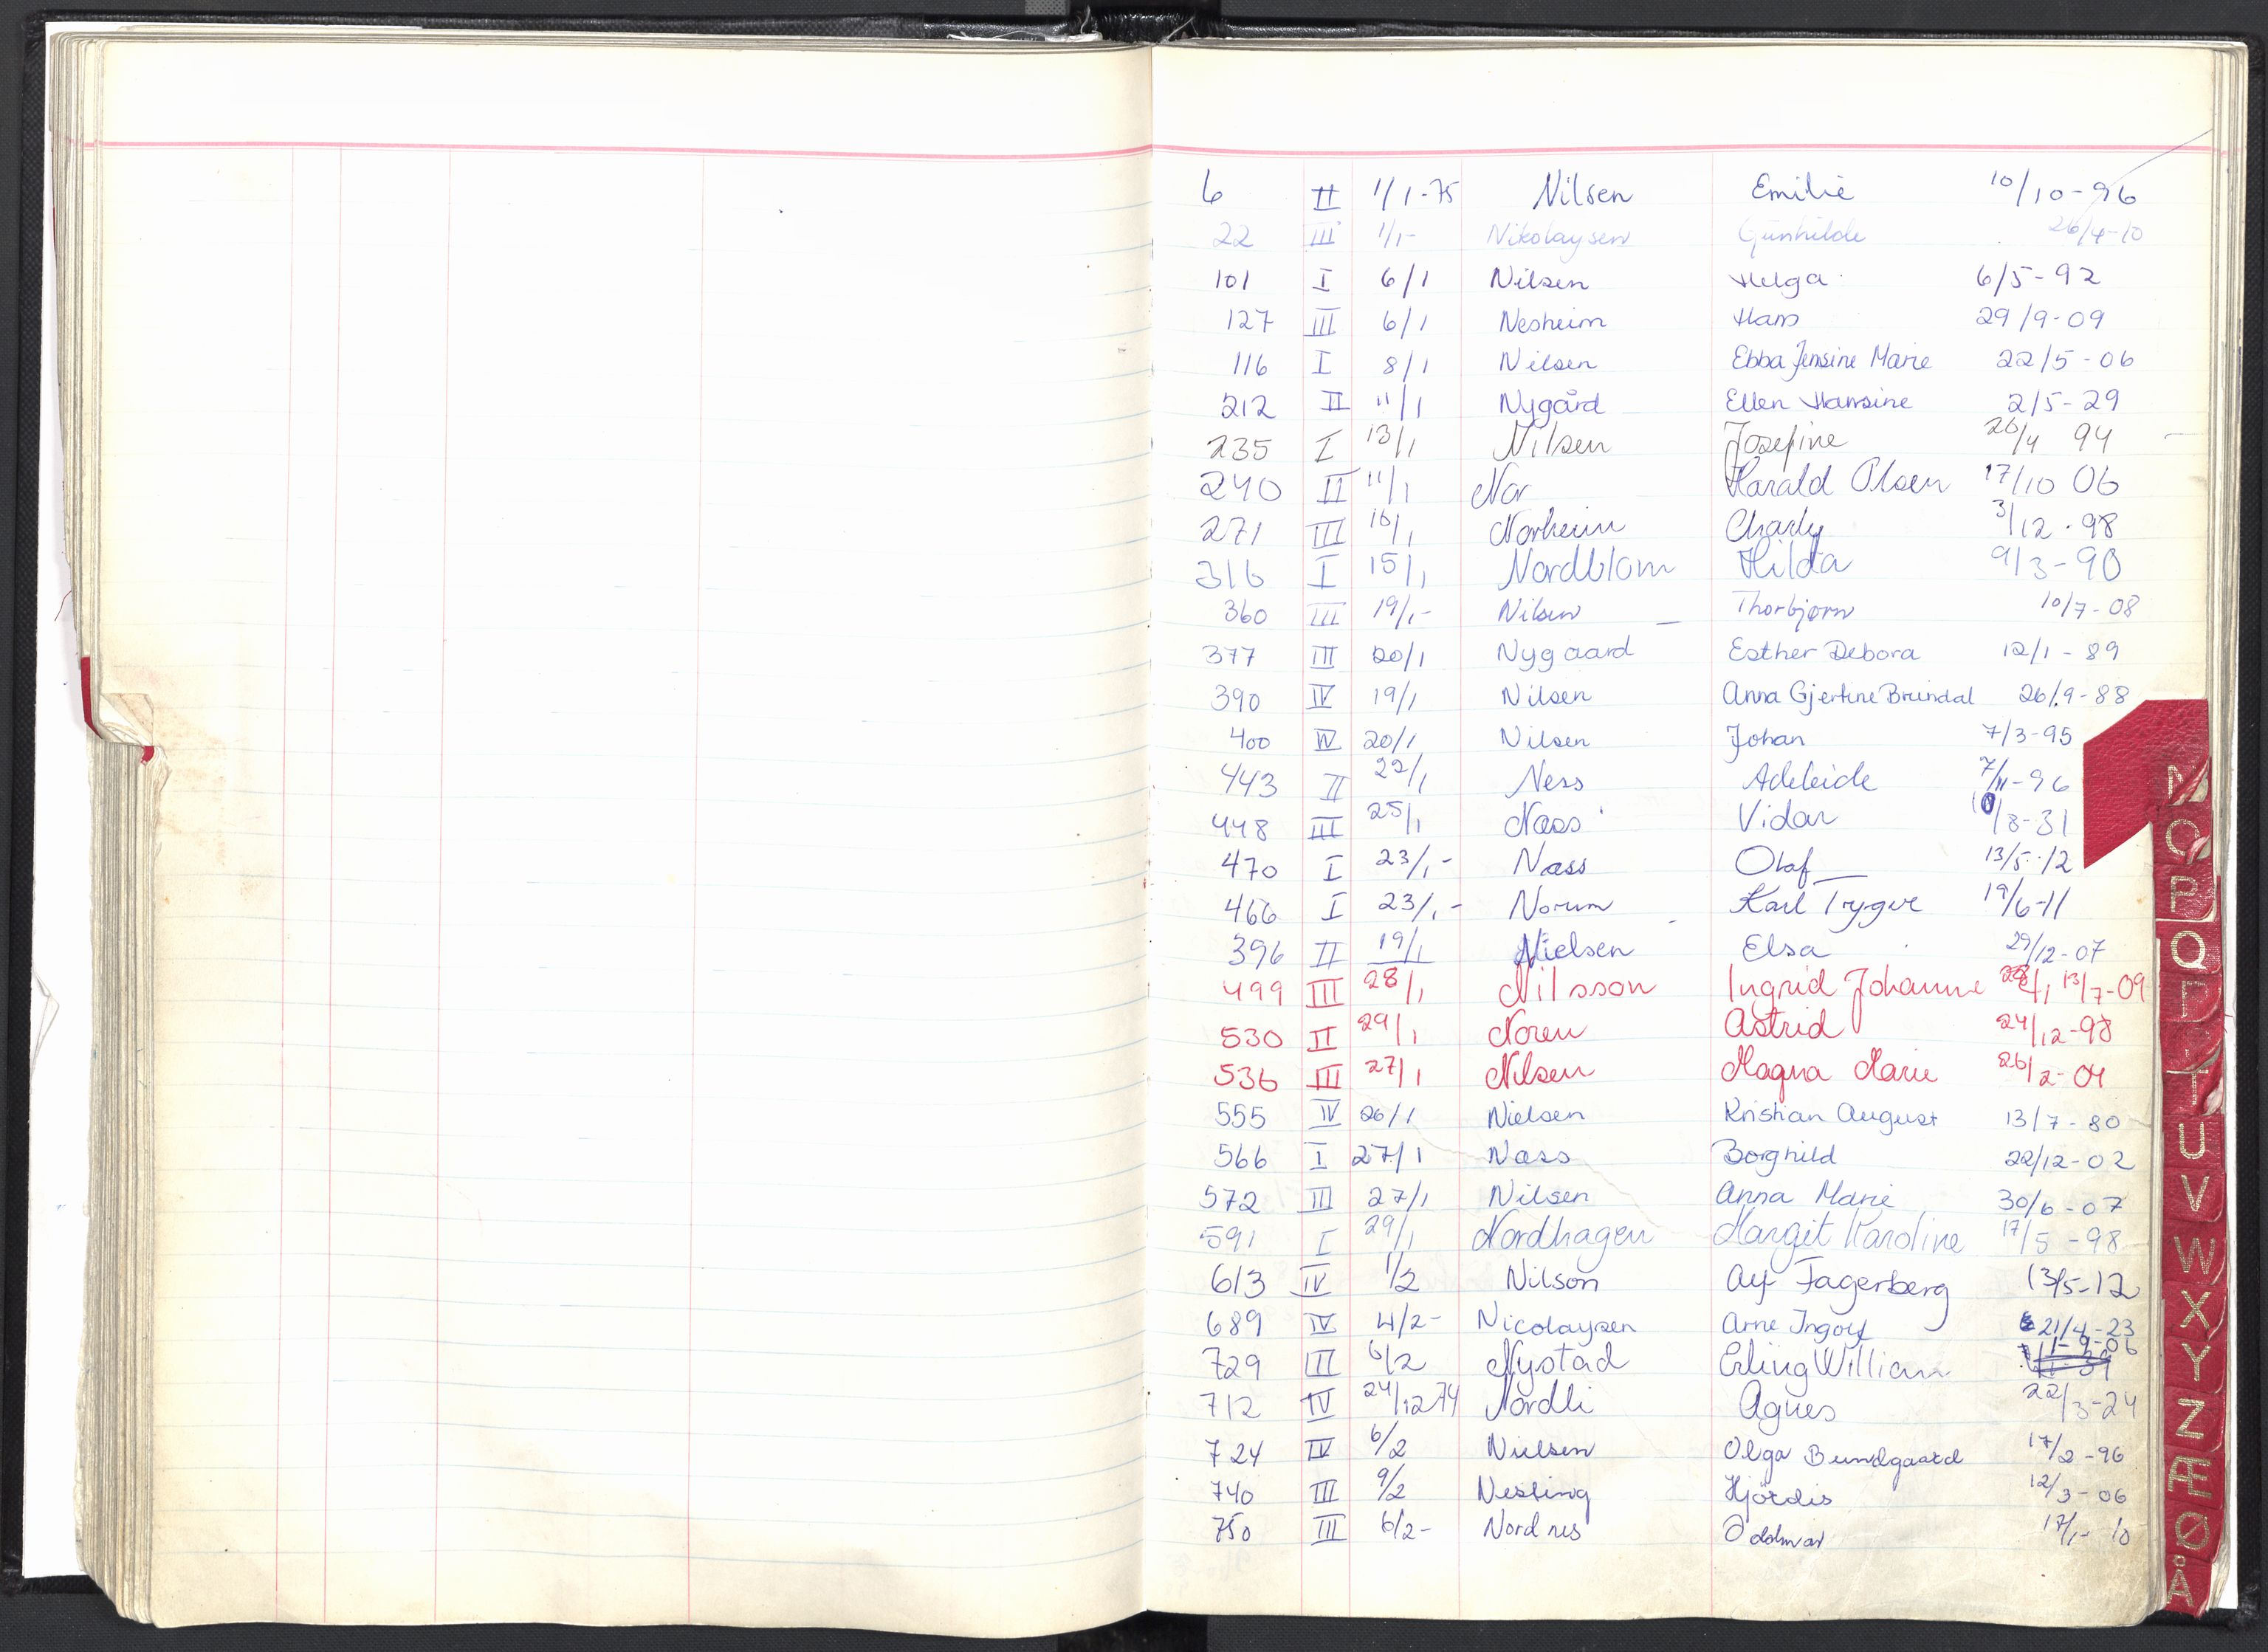 6 II 1/1-75 Nilsen Emilie 10/10-96
22 III 1/1- Nikolaysen Gunhilde 26/4-10
101 I 6/1 Nilsen Helga 6/5-92
127 III 6/1 Nesheim Hans 29/9-09
116 I 8/1 Nilsen Ebba Jensine Marie 22/5-06
212 II 11/1 Nygård Ellen Hansine 2/5-29
235 I 13/1 Nilsen Josefine 26/4 94
240 II 11/1 Nor Harald Olsen 17/10 06
271 III 16/1 Norheim Charly 3/12-98
316 I 15/1 Nordblom Hilda 9/3-90
360 III 19/1- Nilsen Thorbjørn 10/7-08
377 III 20/1 Nygaard Esther Debora 12/1-89
390 IV 19/1 Nilsen Anna Gjertine Brundal 26/9-88
400 IV 20/1 Nilsen Johan 7/3-95
443 II 22/1 Ness Adeleide 7/11-96
448 III 25/1 Næss Vidar 10/8-31
470 I 23/1- Næss Olaf 13/5-12
466 I 23/1- Norum Karl Trygve 19/6-11
396 II 19/1 Nielsen Elsa 29/12-07
499 III 28/1 Nilsson Ingrid Johanne 13/7-09
530 II 29/1 Noren Astrid 24/12-98
536 III 27/1 Nilsen Magna Marie 26/2-04
555 IV 26/1 Nielsen Kristian August 13/7-80
566 I 27/1 Næss Borghild 22/12-02
572 III 27/1 Nilsen Anna Marie 30/6-07
591 I 29/1 Nordhagen Margit Karoline 17/5-98
613 IV 1/2 Nilson Alf Fagerberg 13/5-12
689 IV 4/2- Nicolaysen Arne Ingolf 21/4-23
729 III 6/2 Nystad Erling William 11-9-06
712 IV 24/12 74 Nordli Agnes 22/3-24
724 IV 6/2 Nielsen Olga Bundgaard 17/2-96
740 III 9/2 Nesting Hjördis 12/3-06
750 III 6/2- Nordnes Oddmar 17/1-10
N
O
P
Q
R
T
U
V
W
X
Y
Z
Æ
Ø
Å